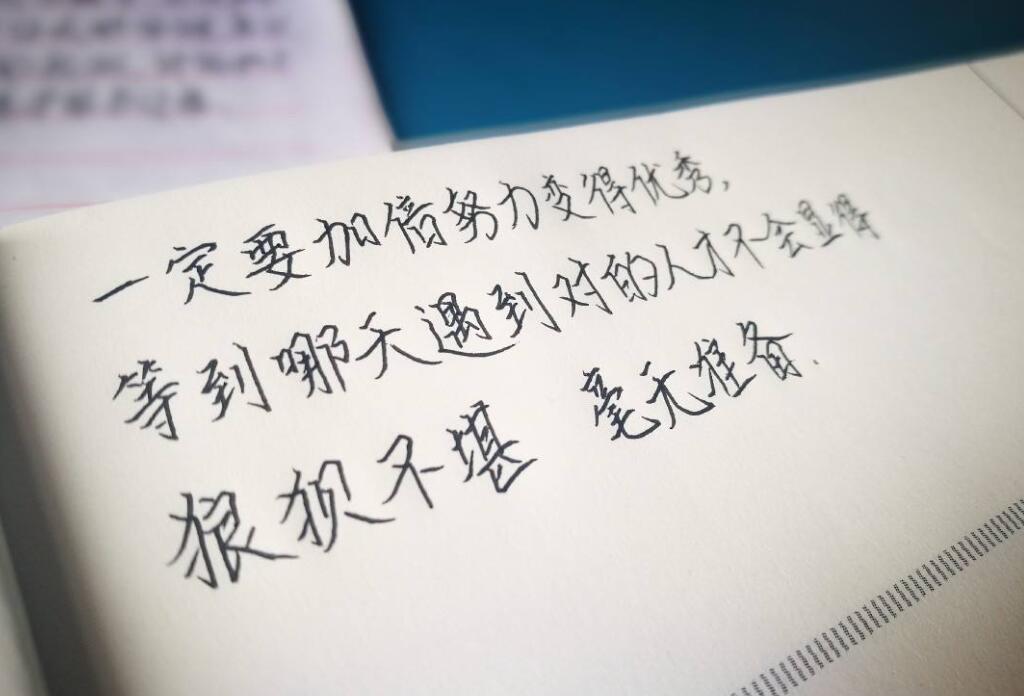 一定要加倍努力变得优秀，
等到哪天遇到对的人才不会显得
狼狈不堪 毫无准备.